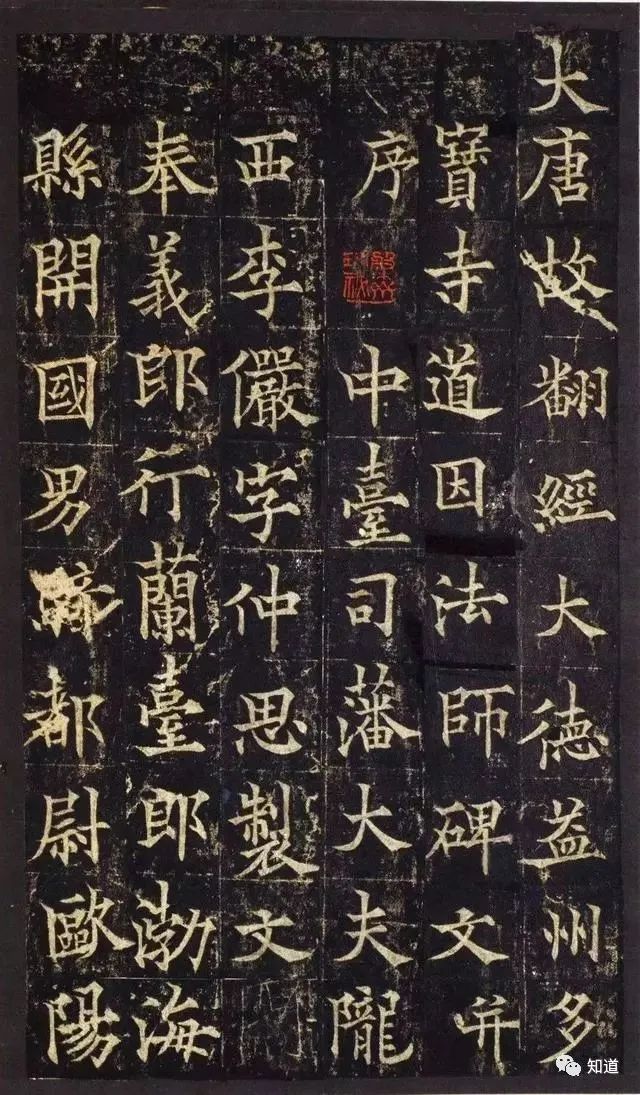 大唐故翻經大德益州多
寶寺道因法師碑文并
序中臺司藩大夫隴
西李儼字仲思製文
奉義郎行蘭臺郎渤海
縣開國男騎都尉歐陽
知道